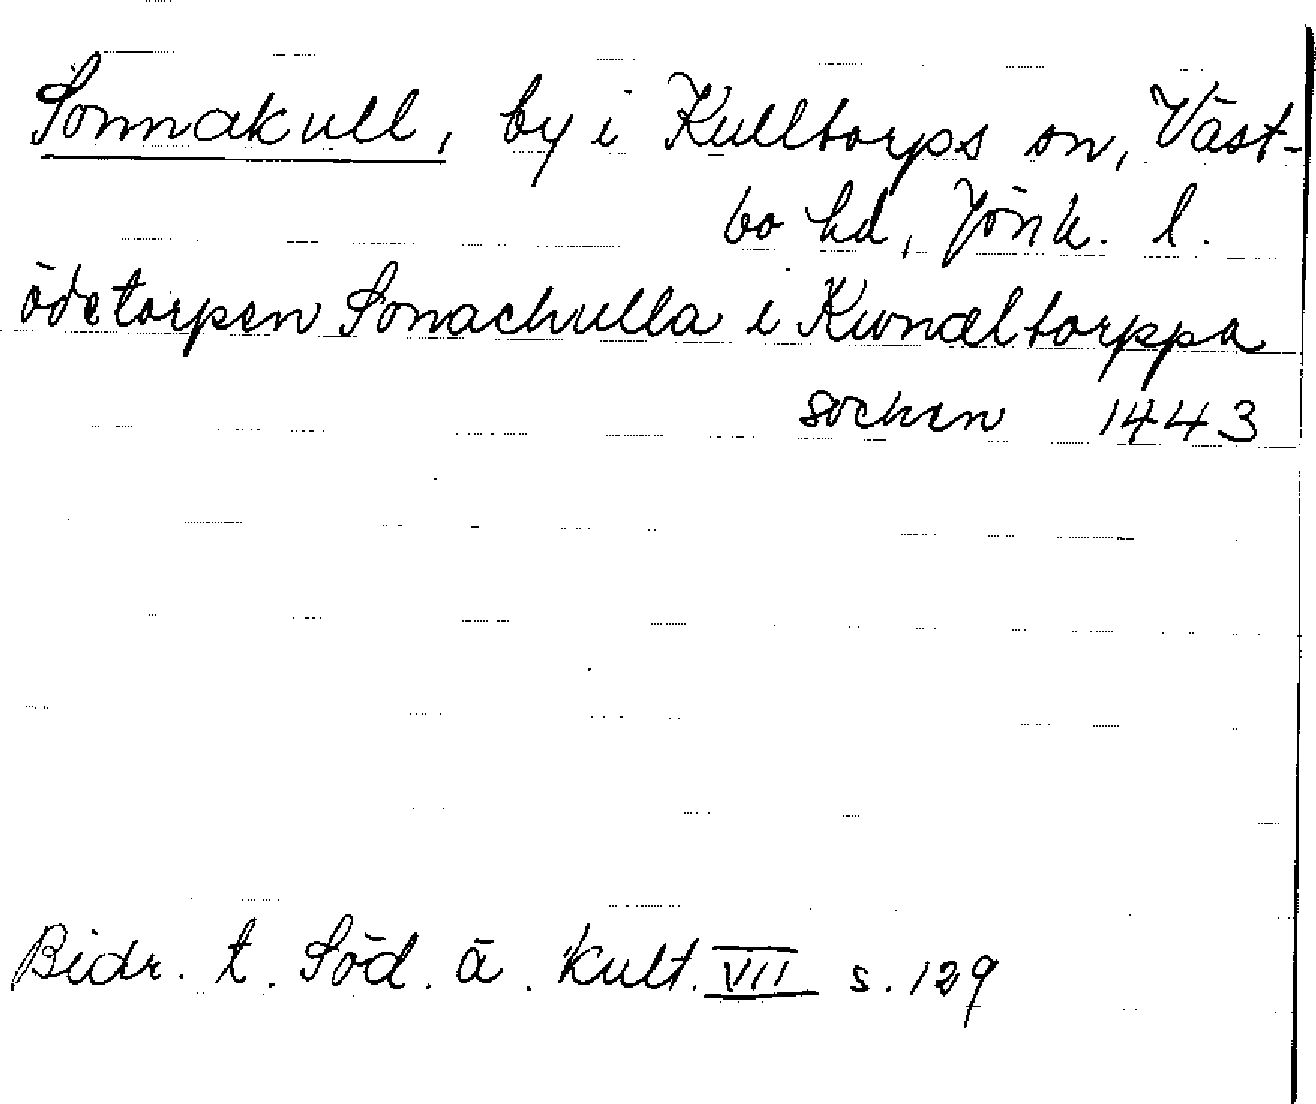 Sonnakull, by i Kulltorps sn, Väst-
bo hd, Jönk. l.
ödetorpen Sonachulla i Kwnæltorppa
sochen 1443
Bidr. t. Söd. ä. Kult. VII s. 129